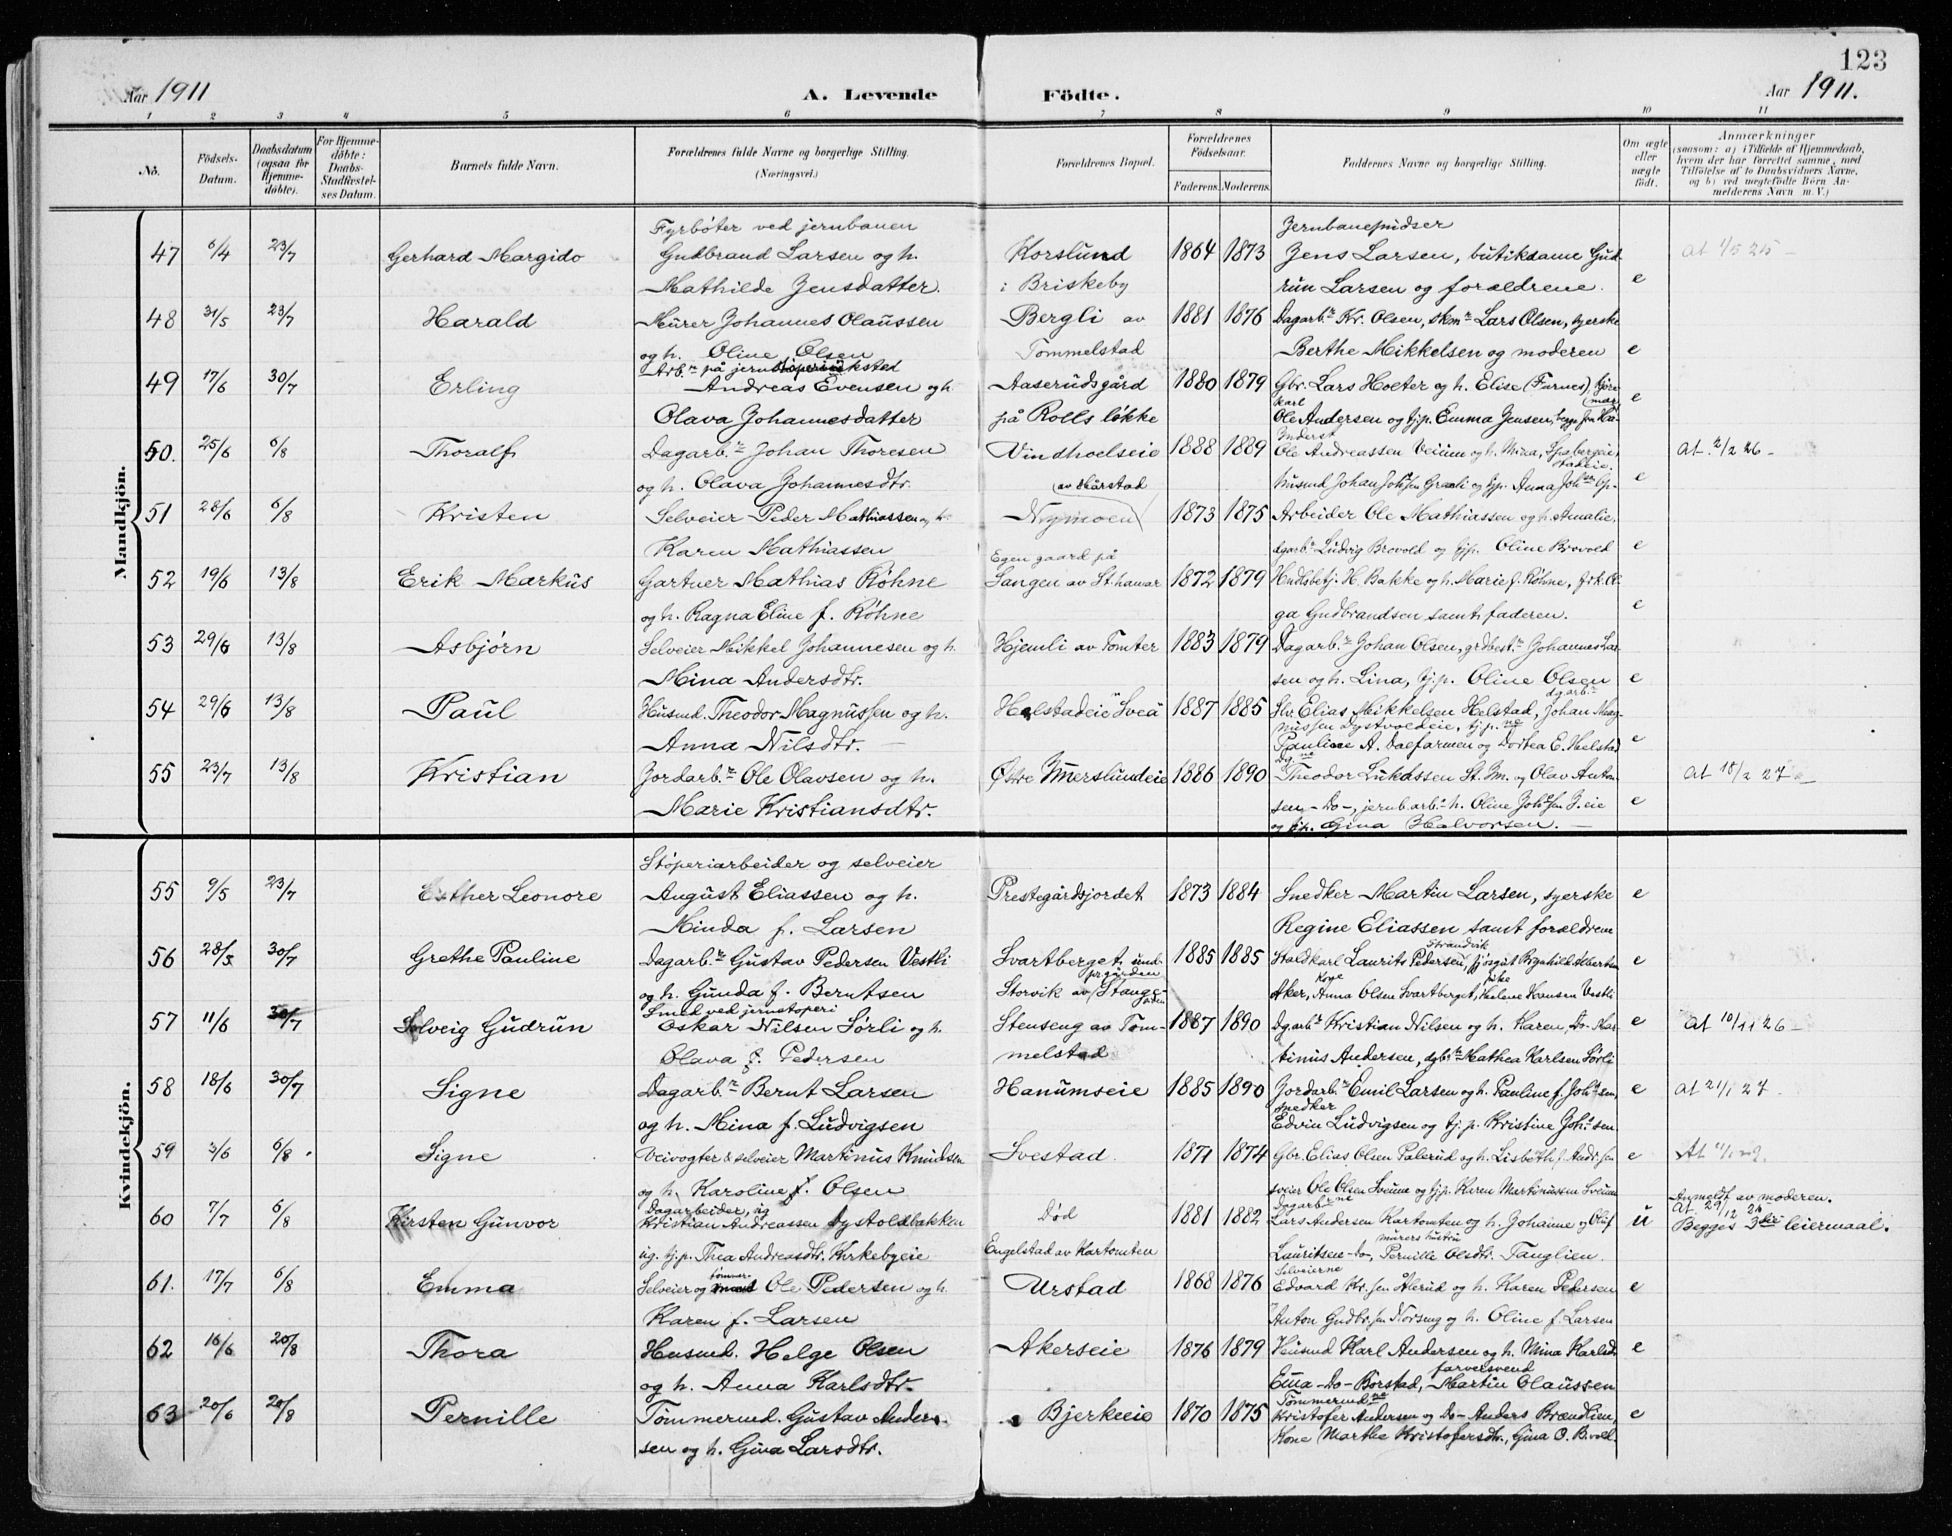 123
Aar 1911
A. Levende
Födte.
Aar 1911.
1 2 3 4 5 6 7 8 9 10 11
No.
Födsels-
Datum.
Daabsdatum
(ogsaa for
Hjemme-
döbte).
For Hjemme-
döbte:
Daabs-
Stadfæstel-
ses Datum.
Barnets fulde Navn.
Forældrenes fulde Navne og borgerlige Stilling.
(Næringsvei.)
Forældrenes Bopæl.
Forældrenes
Födselsaar.
Faderens. Moderens.
Faddernes Navne og borgerlige Stilling.
Om ægte
eller
uægte
födt.
Anmærkninger
(saasom: a) i Tilfælde af Hjemmedaab,
hvem der har forrettet samme, med
Tilföielse af to Daabsvidners Navne,
og b) ved uægtefödte Börn An-
melderens Navn m. V.)
Mandkjön.
Fyrbøter ved jernbanen Jernbanepudser
47 6/4 23/7 Gerhard Margido Gudbrand Larsen og h. Korslund 1864 1873 Jens Larsen, butikdame Gud- at 1/5 25
Mathilde Jensdatter. i Briskeby run Larsen og forældrene. e
48 31/5 23/7 Harald Murer Johannes Olaussen Bergli av 1881 1876 Dagarbr. Kr. Olsen, skomr Lars Olsen, syerske
og h. Oline Olsen Tommelstad Berthe Mikkelsen og moderen e
Arbr. på
49 17/6 30/7 Erling Andreas Evensen og h Aaserudsgård 1880 1879 Gbr. Lars Hoeter og h. Elise (Furnes), kjøre-
karl
Olava Johannesdatter på Rolls løkke Ole Andersen og tjp. Emma Jensen, begge fra e
Inderst
50. 25/6 6/8 Thoralf Dagarb. Johan Thoresen Vindhoelseie 1888 1889 Ole Andreassen Veium og h. Mina, at 2/2 26
og h. Olava Johannesdtr. av Skårstad husmd Johan og tjp. Anna e
51 28/6 6/8 Kristen Selveier Peder Mathiassen og h. Nymoen 1873 1875 Arbeider Ole Mathiassen og h. Amalie,
Karen Mathiassen dgarb. Ludvig Brovold og tjp. Oline Brovold e
Egen gaard på
52 19/6 13/8 Erik Markus Gartner Mathias Røhne Sangen av St. hamar 1872 1879 Hndlsbetj. H. Bakke og h. Marie f. Røhne, frk. Ol-
og h. Ragna Eline f. Røhne ga Gudbrandsen samt faderen. e
53 29/6 13/8 Asbjørn Selveier Mikkel Johannesen og h. Hjemli av Tomter 1883 1879 Dagarb. Johan Olsen, grdbest. Johannes Lar-
Mina Andersdtr. sen og h. Lina, tj.p. Oline Olsen e
dgarb.
54 29/6 13/8 Paul Husmd. Theodor Magnussen og h. Helstadeie Sveå 1887 1885 Slv. Elias Mikkelsen Helstad, Johan Mag-
nussen Dystvoldeie, tj.p.
Anna Nilsdtr. Pauline A. Dalfarmen og Dortea E. Helstad e
55 23/7 13/8 Kristian Jordarb. Ole Olavsen og h. Østre Imerslundeie 1886 1890 Theodor Lukassen St. Im. og Olav Anton- at 18/2 27
Marie Kristiansdtr. sen - Do -, jernb.arb. h. Oline e
og tjp. Gina Halvorsen.
Kvindekjön.
Støperiarbeider og selveier
55 9/5 23/7 Esther Leonore August Eliassen og h. Prestegårdsjordet 1873 1884 Snedker Martin Larsen, syerske e
Minda f. Larsen Regine Eliassen samt forældrene
Strandvik
56 28/5 30/7 Grethe Pauline Dagarb. Gustav Pedersen Vestli Svartberget 1885 1885 Staldkarl Laurits Pedersen, e
Kone
og h. Gunda f. Berntsen Storvik av Stange- Aker, Anna Olsen Svartberget, Helene Hansen Vestli
Smed ved jernstøperi
57 11/6 30/7 Solveig Gudrun Oskar Nilsen Sørli og h. Stenseng av Tom- 1887 1890 Dgarb. Kristian Nilsen og h. Karen, Do. Mar- e at 10/11 26
Olava f. Pedersen melstad tinius Andersen, Mathea Karlsen Sørli
58 18/6 30/7 Signe Dagarb. Bernt Larsen Hanumseie 1885 1890 Jordarb. Emil Larsen og h. Pauline f. Johssen, e at 21/1 27
snedker
og h. Mina f. Ludvigsen Edvin Ludvigsen og tj.p. Kristine Johssen
59 3/6 6/8 Signe Veivogter & selveier Martinus Knudsen Svestad 1871 1874 Gbr. Elias Olsen Palerud og h. Lisbeth f. e
og h. Karoline f. Olsen sveier Ole Olsen Sveum og tjp. Karen Martinussen Sveum
Dagarbeider, ug Dagarb. Anmeldt av moderen.
60 7/7 6/8 Kirsten Gunvor Kristian Andreassen Dystoldbakken Død 1881 1882 Lars Andersen Kartomten og h. Johanne og Oluf u at 29/12 26
Begges 3die leiermaal.
ug. tj.p. Thea Andreasdtr. Kirkebyeie Engelstad av Kartomten Lauritsen - Do -, Pernille Olsdtr. Tanglien.
murers hustru
tømmer Selveierne
61. 17/7 6/8 Emma Selveier og Ole Pedersen og h. Urstad 1868 1876 Edvard Kr.sen Ålerud og h. Karen Pedersen e
Karen f. Larsen Anton Gudbr.sen Norseng og h. Oline f. Larsen
62 16/6 20/8 Thora Husmd. Helge Olsen Akerseie 1876 1879 Husmd Karl Andersen og h. Mina Karlsdtr. e
farversvend
og h. Anna Karlsdtr. Ema - Do - Borstad, Martin Olaussen
Tømmermd.ne
63 20/6 20/8 Pernille Tømmermd. Gustav Ander- Bjerkeeie 1870 1875 Kristofer Andersen og Do - Anders Brændlien, e
sen og h. Gina Larsdtr. Kone Marthe Kristofersdtr., Gina O. B.voll.